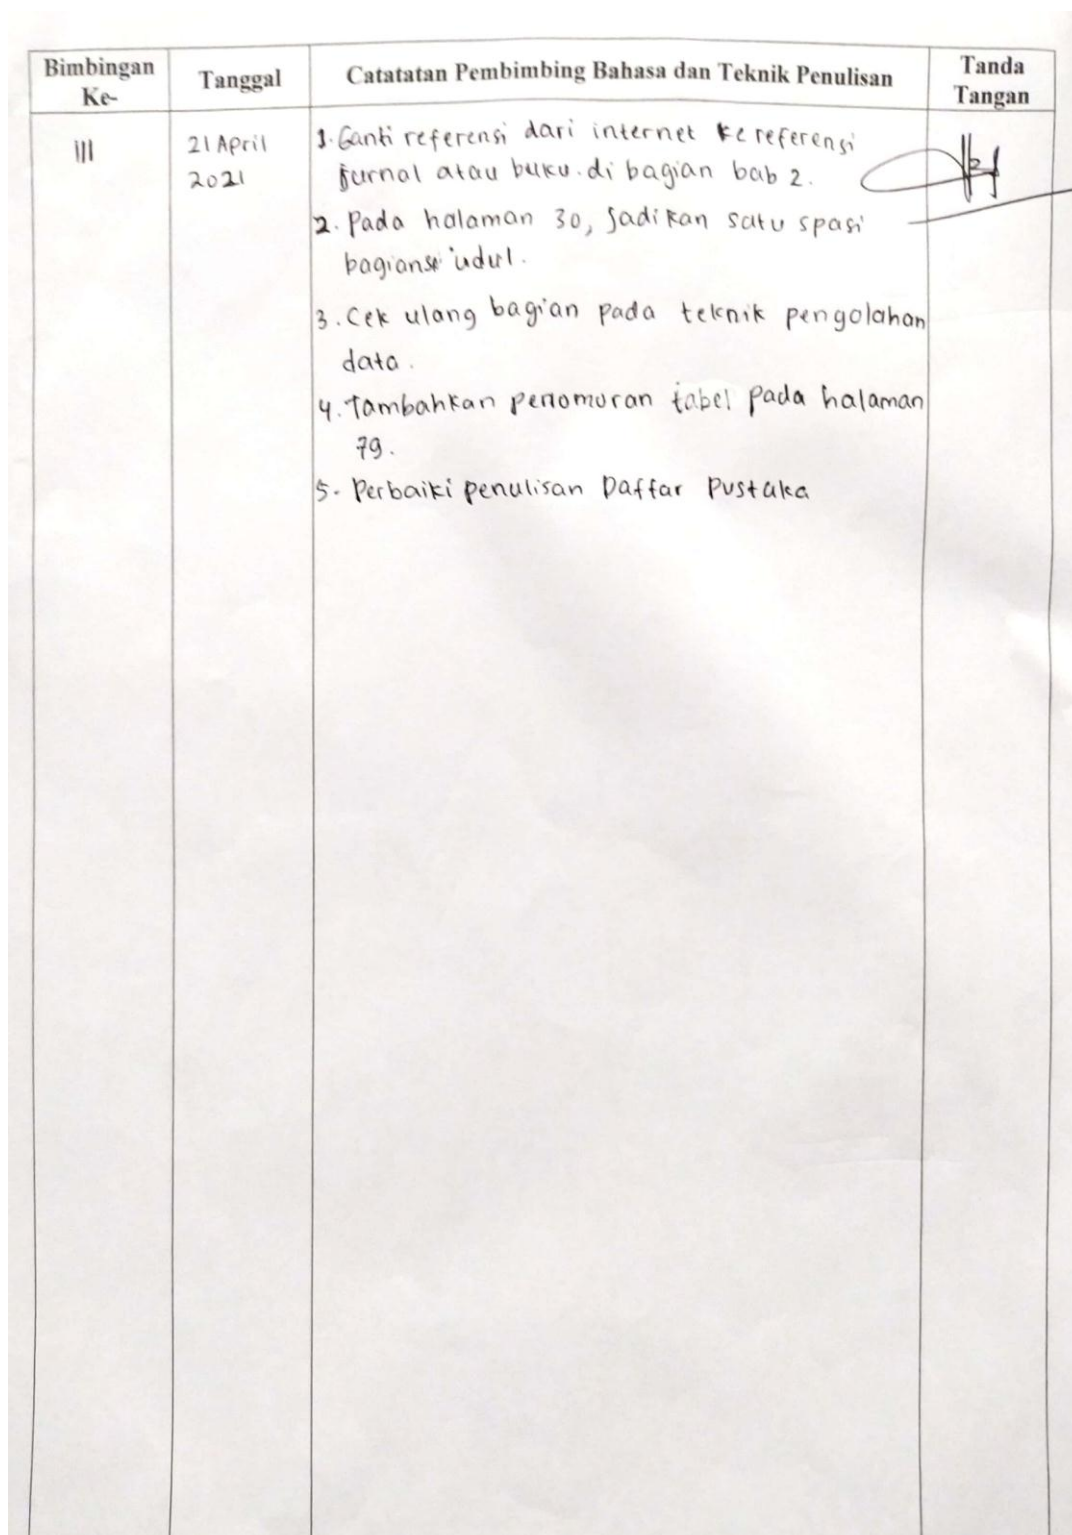 Bimbingan Ke-
Tanggal
Catatatan Pembimbing Bahasa dan Teknik Penulisan
Tanda Tangan
III
21 April
2021
1. Ganti referensi dari internet ke referensi
jurnal atau buku. di bagian bab 2.
2. Pada halaman 30, jadikan satu spasi
bagian
3. Cek ulang bagian pada teknik pengolahan
data.
4. Tambahkan penomoran tabel pada halaman
79.
5. Perbaiki penulisan Daftar Pustaka